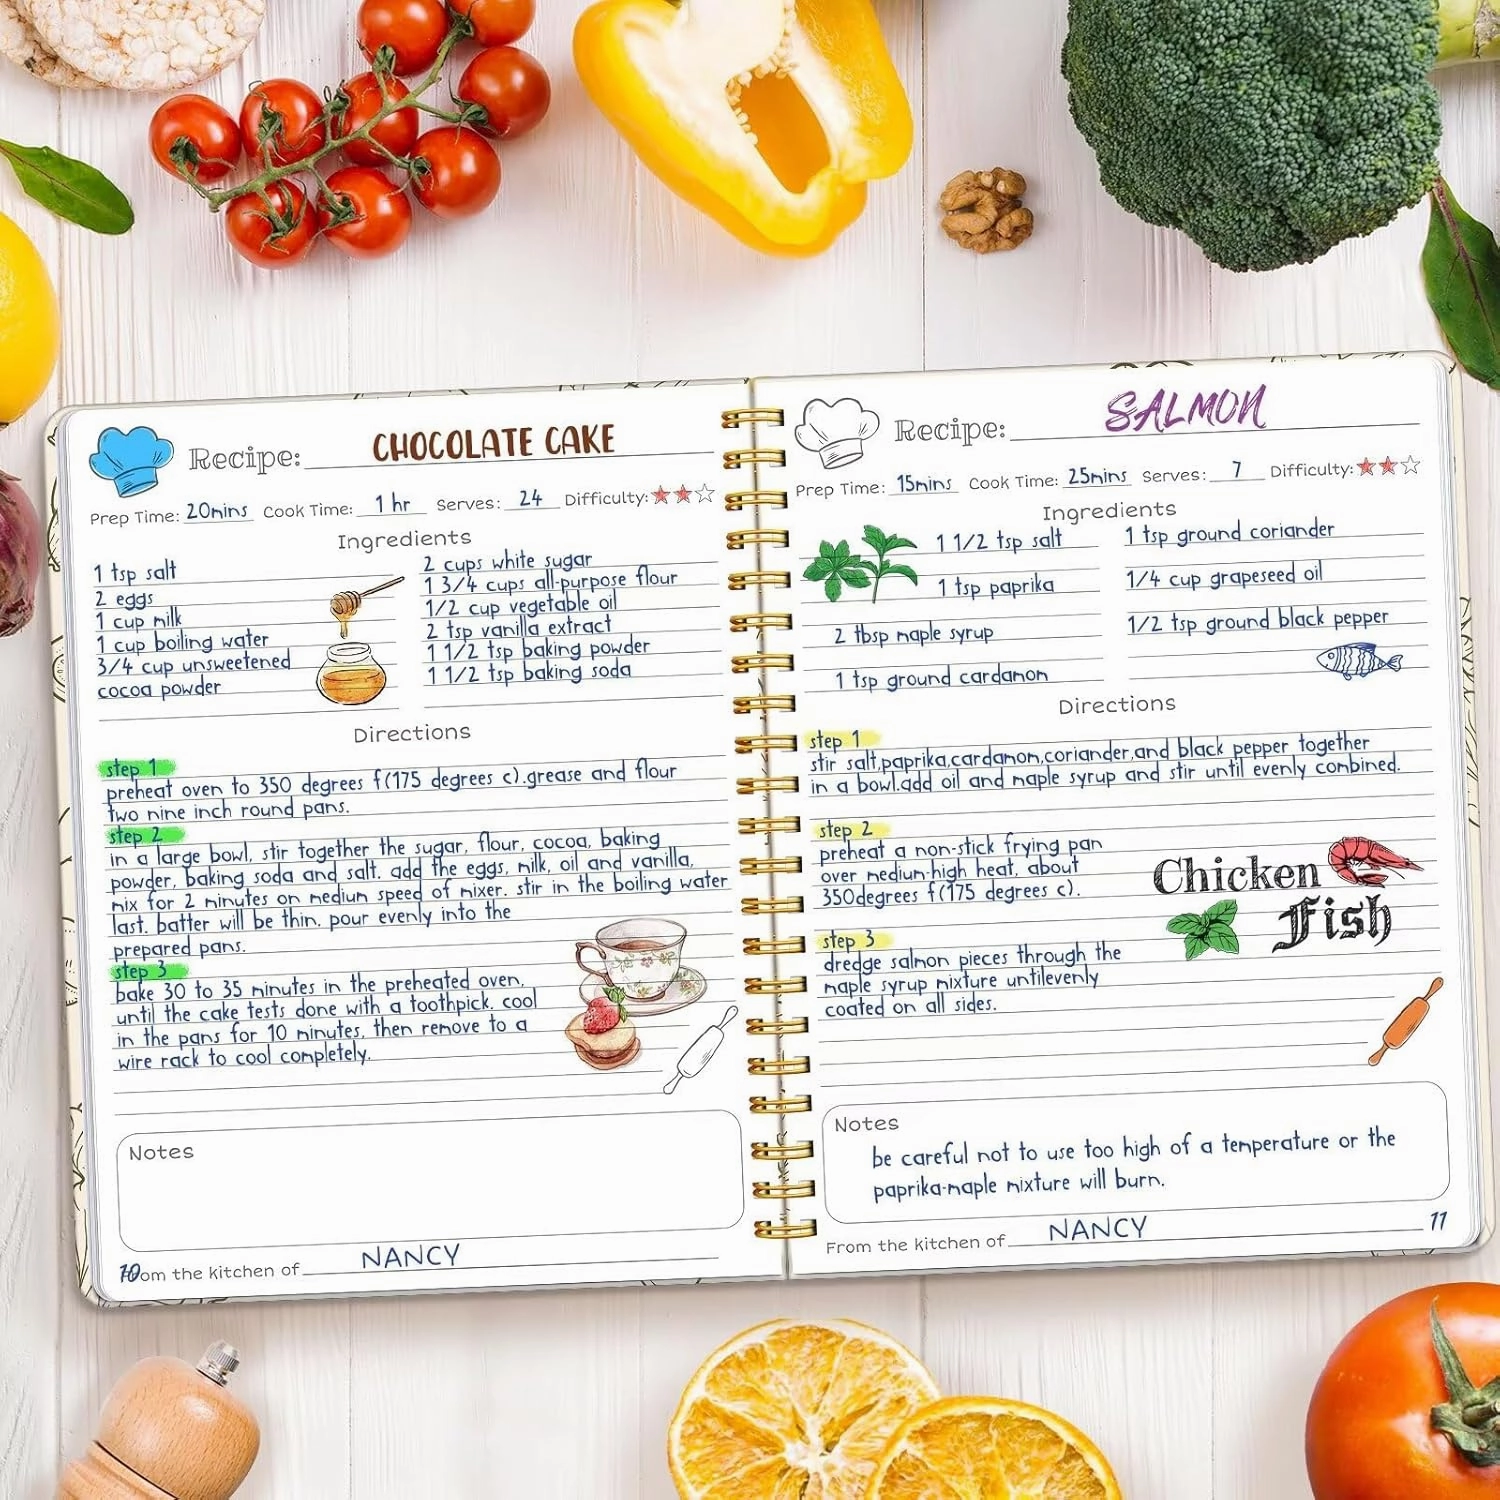 Recipe: CHOCOLATE CAKE
Prep Time: 20mins Cook Time: 1 hr Serves: 24 Difficulty:
Ingredients
1 tsp salt
2 eggs
1 cup milk
1 cup boiling water
3/4 cup unsweetened
cocoa powder
2 cups white sugar
1 3/4 cups all-purpose flour
1/2 cup vegetable oil
2 tsp vanilla extract
1 1/2 tsp baking powder
1 1/2 tsp baking soda
Directions
step 1
preheat oven to 350 degrees f(175 degrees c).grease and flour
two nine inch round pans.
step 2
in a large bowl, stir together the sugar, flour, cocoa, baking
powder, baking soda and salt. add the eggs, milk, oil and vanilla,
mix for 2 minutes on medium speed of mixer. stir in the boiling water
last. batter will be thin. pour evenly into the
prepared pans.
step 3
bake 30 to 35 minutes in the preheated oven,
until the cake tests done with a toothpick. cool
in the pans for 10 minutes, then remove to a
wire rack to cool completely.
Notes
10
om the kitchen of NANCY
Recipe: SALMON
Prep Time: 15mins Cook Time: 25mins Serves: 7 Difficulty:
Ingredients
1 1/2 tsp salt
1 tsp paprika
2 tbsp maple syrup
1 tsp ground cardamon
1 tsp ground coriander
1/4 cup grapeseed oil
1/2 tsp ground black pepper
Directions
step 1
stir salt,paprika,cardamon,coriander,and black pepper together
in a bowl.add oil and maple syrup and stir until evenly combined.
step 2
preheat a non-stick frying pan
over medium-high heat, about
350degrees f(175 degrees c).
Chicken
Fish
step 3
dredge salmon pieces through the
maple syrup mixture untilevenly
coated on all sides.
Notes
be careful not to use too high of a temperature or the
paprika-maple mixture will burn.
From the kitchen of NANCY
11